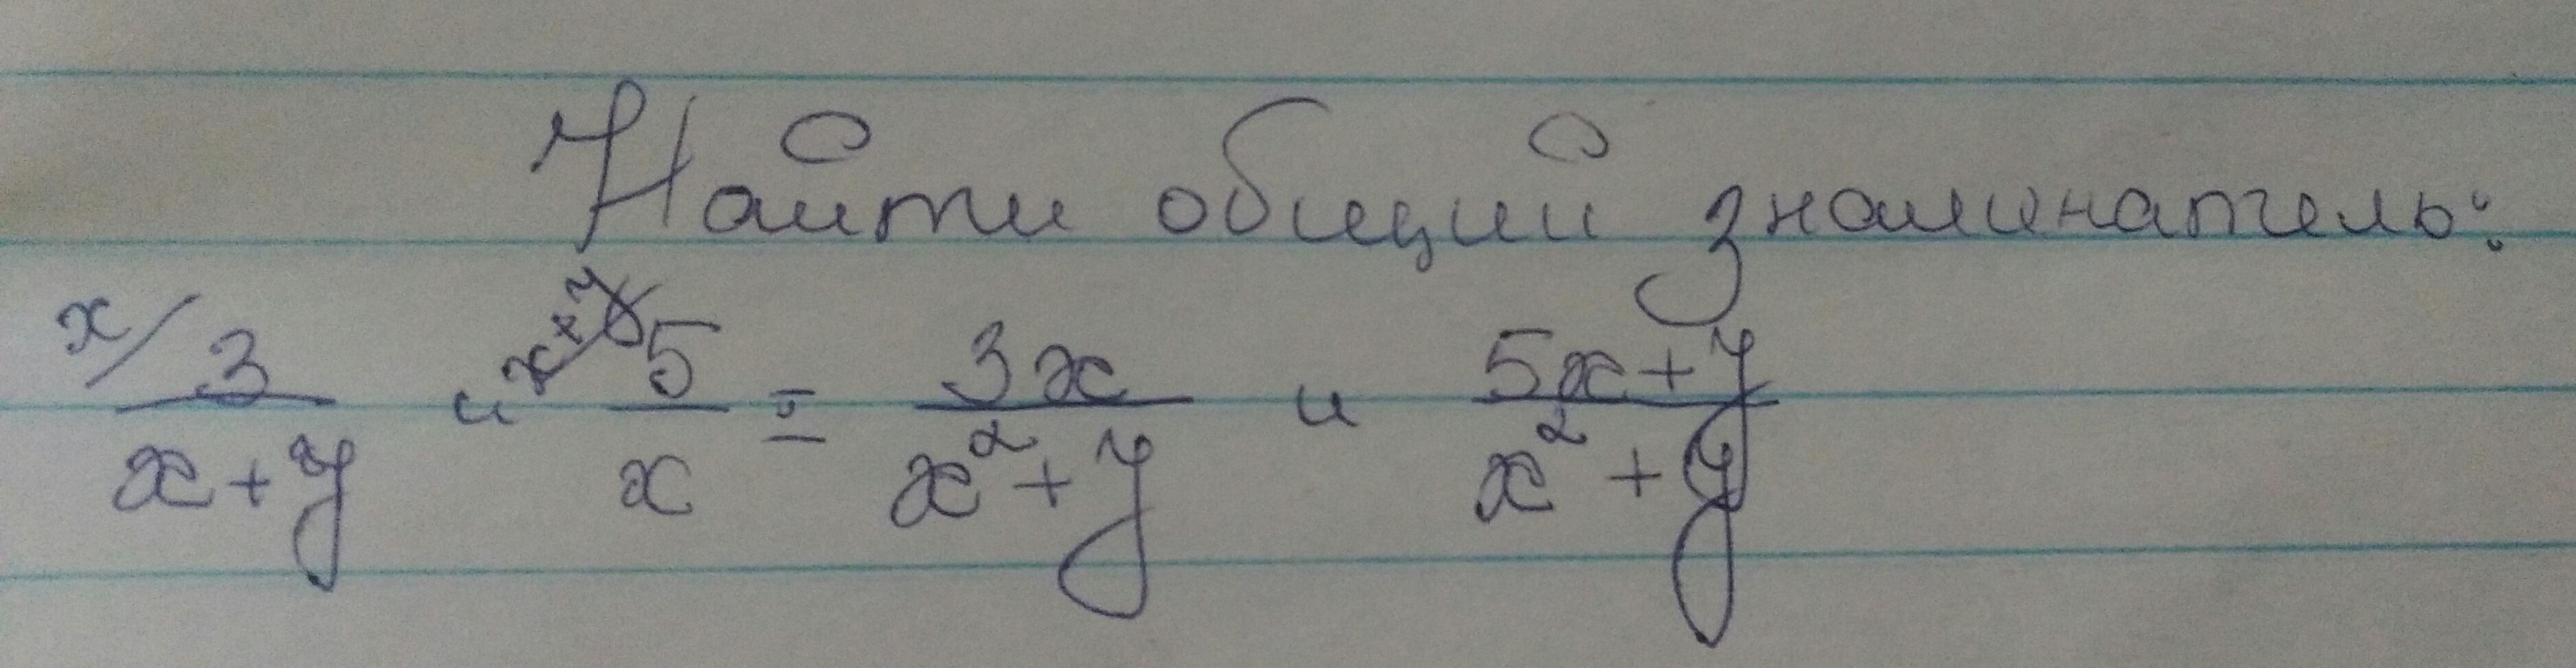 Найти общий знаминатель:
x/ 3/(x+y) и x+y/ 5/x = 3x/(x²+y) и (5x+y)/(x²+y)